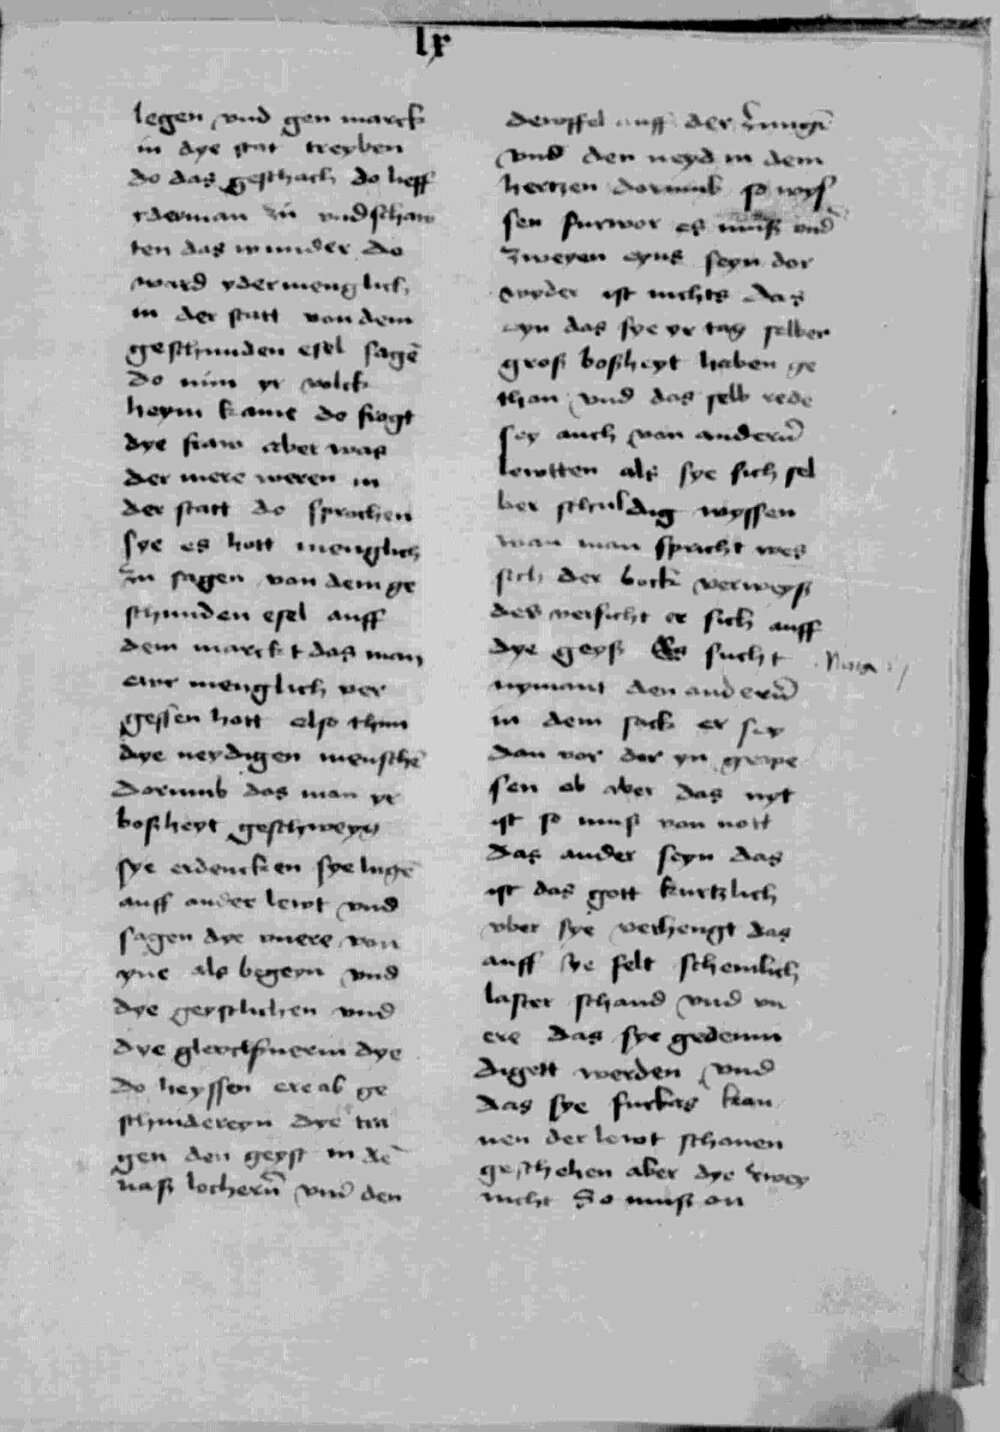 lx
legen vnd gen marck
in dye stat treyben
do das geschach do lieff
yderman zu vnd schaw
ten das wunder do
ward ydermenglich
in der statt von dem
geschunden esel sagē
do nun yr volck
heym kame do fragt
dye fraw aber was
der mere weren in
der statt do sprochen
sye es hott menglich
zu sagen von dem ge
schunden esel auff
dem marckt das man
ewr menglich ver
gessen hott also thun
dye neydigen menschē
dorumb das man yr
boßheyt geschweyg
sye erdencken sye lugē
auff ander lewt vnd
sagen dye mere von
yne als begeyn vnd
dye geystlichen vnd
dye gleychsnerin dye
do heyssen ereab ge
schnidereyn dye tra
gen den geyst in dē
naß locherñ vnd den
dewffel auff der zungē
vnd den neyd in dem
hertzen dorumb so wys
sen furwor es muß vnd̄
zweyen eyns seyn dor
wyder ist nichts das
eyn das sye yr tag selber
groß boßheyt haben ge
than vnd das selb rede
sey auch von anderñ
lewtten als sye sich sel
ber schuldig wyssen
wan man spricht wes
sich der bock verweyß
des versicht er sich auff
dye geyß Es sucht
nymant den anderñ
in dem sack er sey
dan vor dor yn gewe
sen ob aber das nyt
ist so muß von nott
das ander seyn das
ist das gott kurtzlich
vber sye verhengt das
auff sye felt schemlich
laster schand vnd vn
ere das sye gedemu
digett werden vnd
das sye furbas kan
nen der lewt schonen
geschehen aber dye zwey
nicht So muß on
Nota